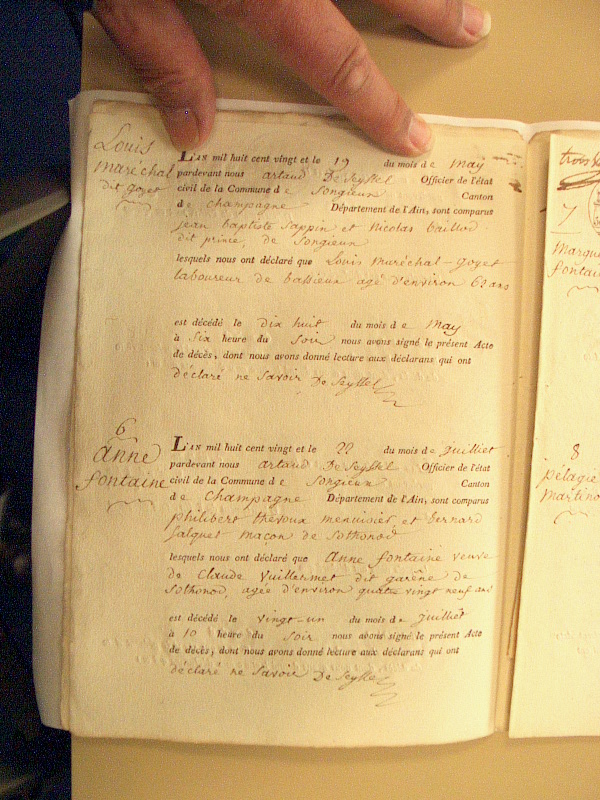 Louis
maréchal
dit goyet
L'AN mil huit cent vingt et le 19 du mois de May
pardevant nous artaud De Seyssel Officier de l'état
civil de la Commune de Songieux Canton
de champagne Département de l'Ain, sont comparus
jean baptiste Sappin et Nicolas baillod
dit prince, de Songieux
lesquels nous ont déclaré que Louis maréchal - goyet
laboureur de bassieux agé d'environ 60 ans
est décédé le dix huit du mois de May
à Six heure du Soir nous avons signé le présent Acte
de décès, dont nous avons donné lecture aux déclarans qui ont
déclaré ne Savoir De Seyssel
6
anne
fontaine
L'AN mil huit cent vingt et le 22 du mois de juilliet
pardevant nous artaud De Seyssel Officier de l'état
civil de la Commune de Songieux Canton
de Champagne Département de l'Ain, sont comparus
philibert thévoux menuisier, et bernard
jalquet macon de Sothonod
lesquels nous ont déclaré que Anne fontaine veuve
de Claude Vuillermet dit garêne de
Sothonod, agée d'environ quatre vingt neuf ans
est décédé le vingt-un du mois de juilliet
à 10 heure du Soir nous avons signé le présent Acte
de décès, dont nous avons donné lecture aux déclarans qui ont
déclaré ne Savoir De Seyssel
7
8
pélagie